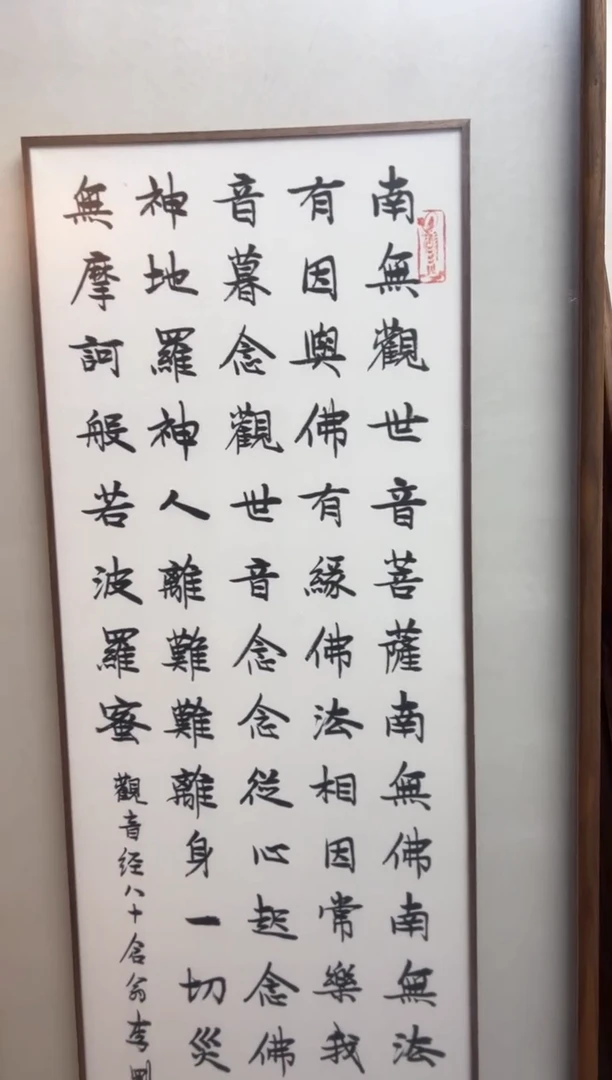 南無觀世音菩薩南無佛南無法
有因與佛有緣佛法相因常樂我
音暮念觀世音念念從心起念佛
神地羅神人離難難離身一切災
無摩訶般若波羅蜜
觀音經八十含翁李